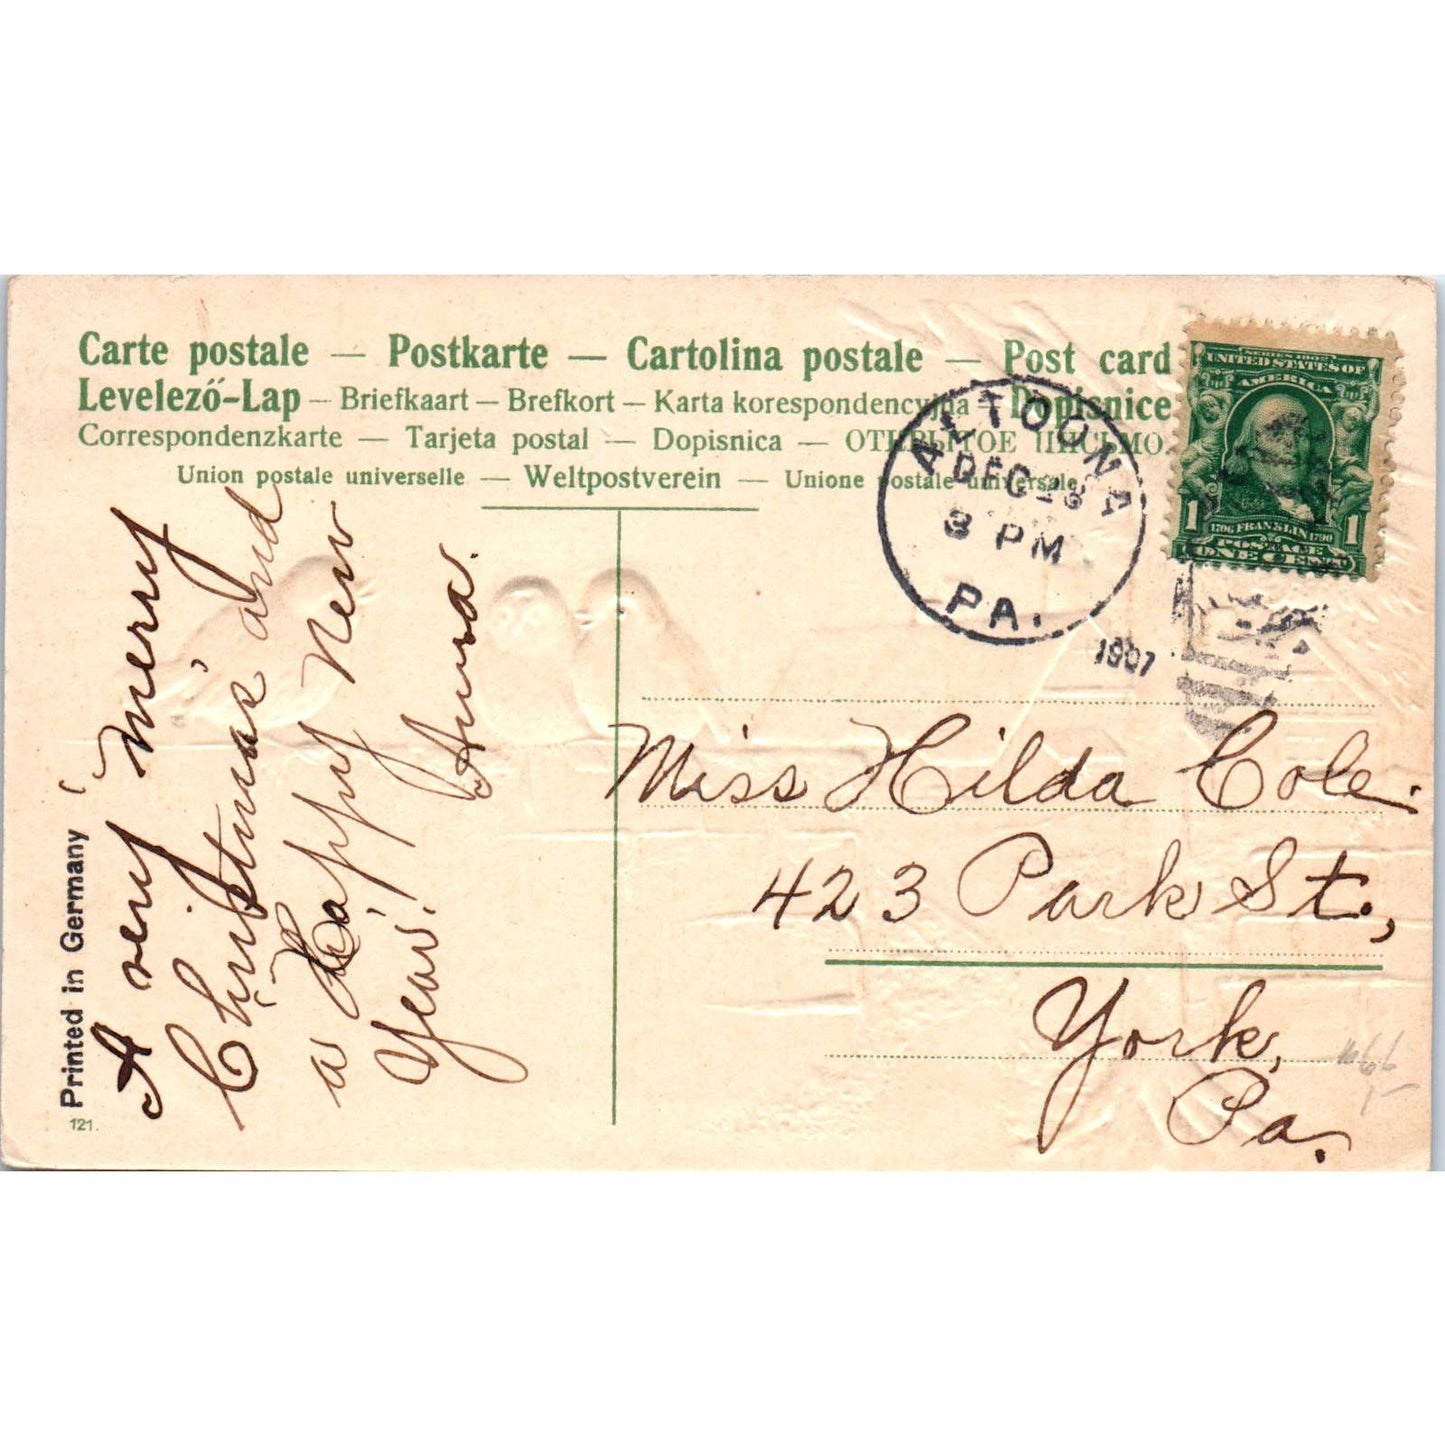 Carte postale — Postkarte — Cartolina postale — Post card
Levelező-Lap — Briefkaart — Brefkort — Karta korespondencyjna — Dopisnice
Correspondenzkarte — Tarjeta postal — Dopisnica — ОТКРЫТОЕ ПИСЬМО.
Union postale universelle — Weltpostverein — Unione postale universale
ALTOONA
DEC
3 PM
PA.
1907
SERIES 1902
UNITED STATES OF
AMERICA
1 1706 FRANKLIN 1790 1
POSTAGE
ONE CENT
A very Merry
Christmas and
a Happy New
Year!
Printed in Germany
121.
Miss Hilda Cole.
423 Park St.,
York,
Pa.